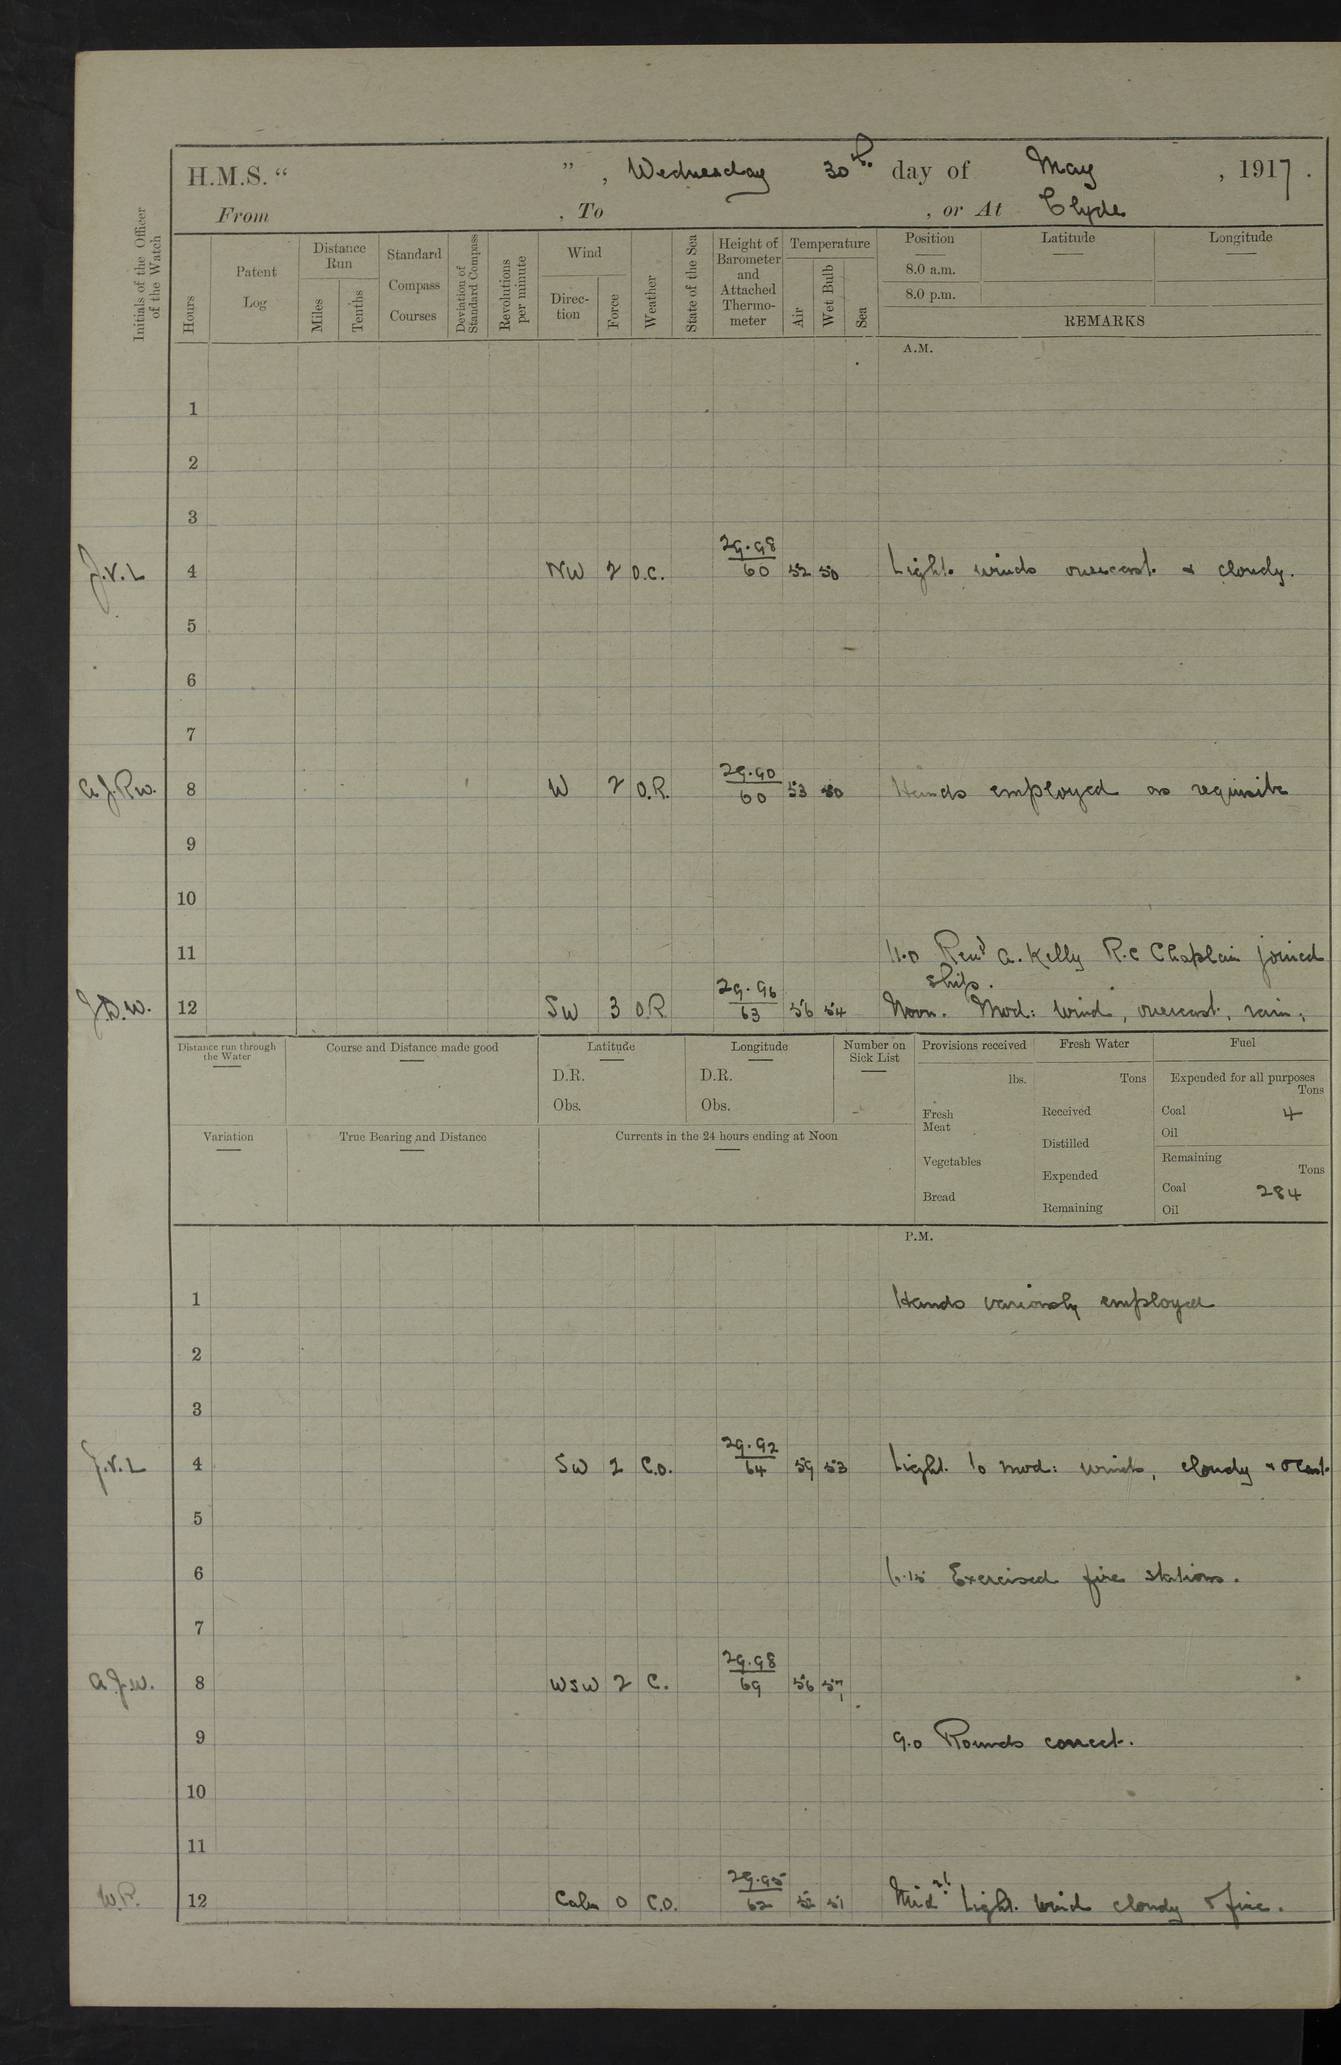 H.M.S. “ ” , Wednesday 30th day of May , 1917.
From , To , or At Clyde
Initials of the Officer of the Watch
Hours
Patent Log
Distance Run
Miles
Tenths
Standard Compass Courses
Deviation of Standard Compass
Revolutions per minute
Wind
Direc-tion
Force
Weather
State of the Sea
Height of Barometer and Attached Thermo-meter
Temperature
Air
Wet Bulb
Sea
Position Latitude Longitude
8.0 a.m.
8.0 p.m.
REMARKS
A.M.
1
2
3
J.V.L 4 NW 2 O.C. 29.98/60 52 50 Light winds overcast & cloudy.
5
6
7
A.J.Rw. 8 W 2 O.R. 29.90/60 53 50 Hands employed as requisite
9
10
11 11.0 Revd A. Kelly R.C Chaplain joined
ship.
J.D.W. 12 SW 3 O.R 29.96/63 56 54 Noon. Mod: wind, overcast, rain.
Distance run through the Water
Course and Distance made good
Latitude
D.R.
Obs.
Longitude
D.R.
Obs.
Number on Sick List
Provisions received
lbs.
Fresh Meat
Vegetables
Bread
Fresh Water
Tons
Received
Distilled
Expended
Remaining
Fuel
Expended for all purposes
Tons
Coal 4
Oil
Remaining
Tons
Coal 284
Oil
Variation
True Bearing and Distance
Currents in the 24 hours ending at Noon
P.M.
1 Hands variously employed
2
3
J.V.L 4 SW 2 C.O. 29.92/64 59 53 Light to mod: winds, cloudy & o'cast
5
6 6.15 Exercised fire stations.
7
A.J.W. 8 WSW 2 C. 29.98/69 56 57
9 9.0 Rounds correct.
10
11
W.R. 12 Calm 0 C.O. 29.95/62 52 51 Midnt: Light wind cloudy & fine.